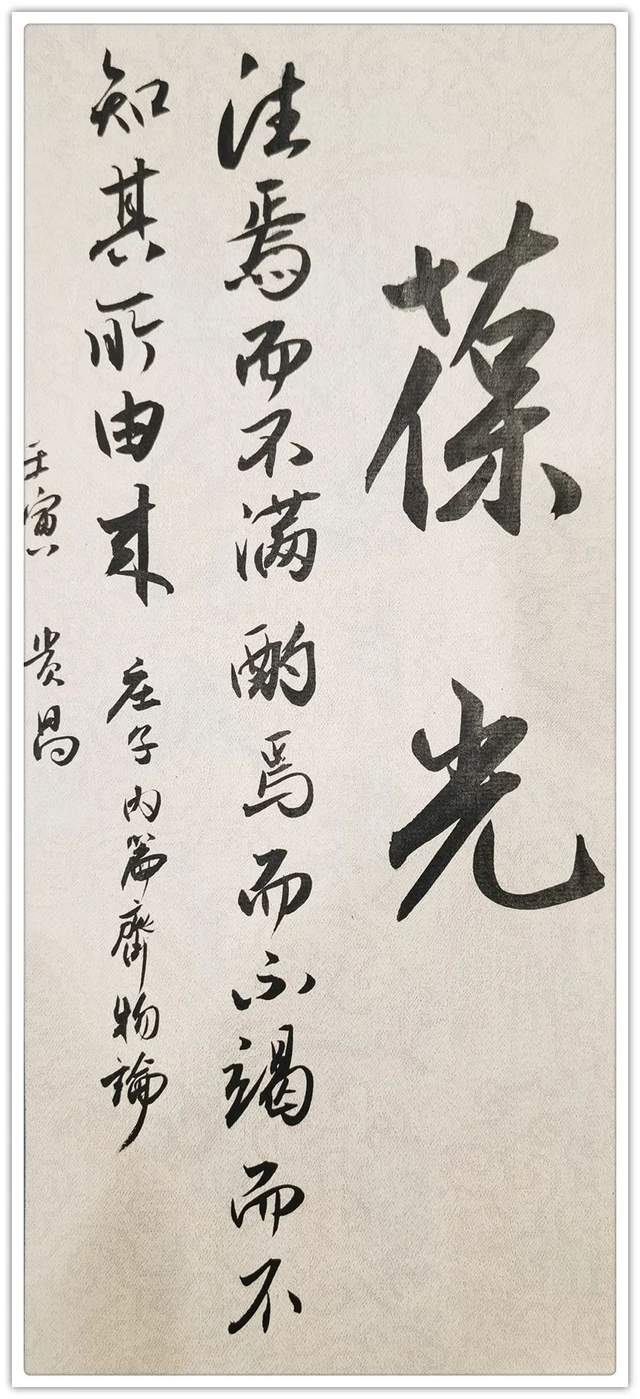 葆光
注焉而不满酌焉而不竭而不
知其所由来 庄子内篇齊物論
壬寅 贵昌